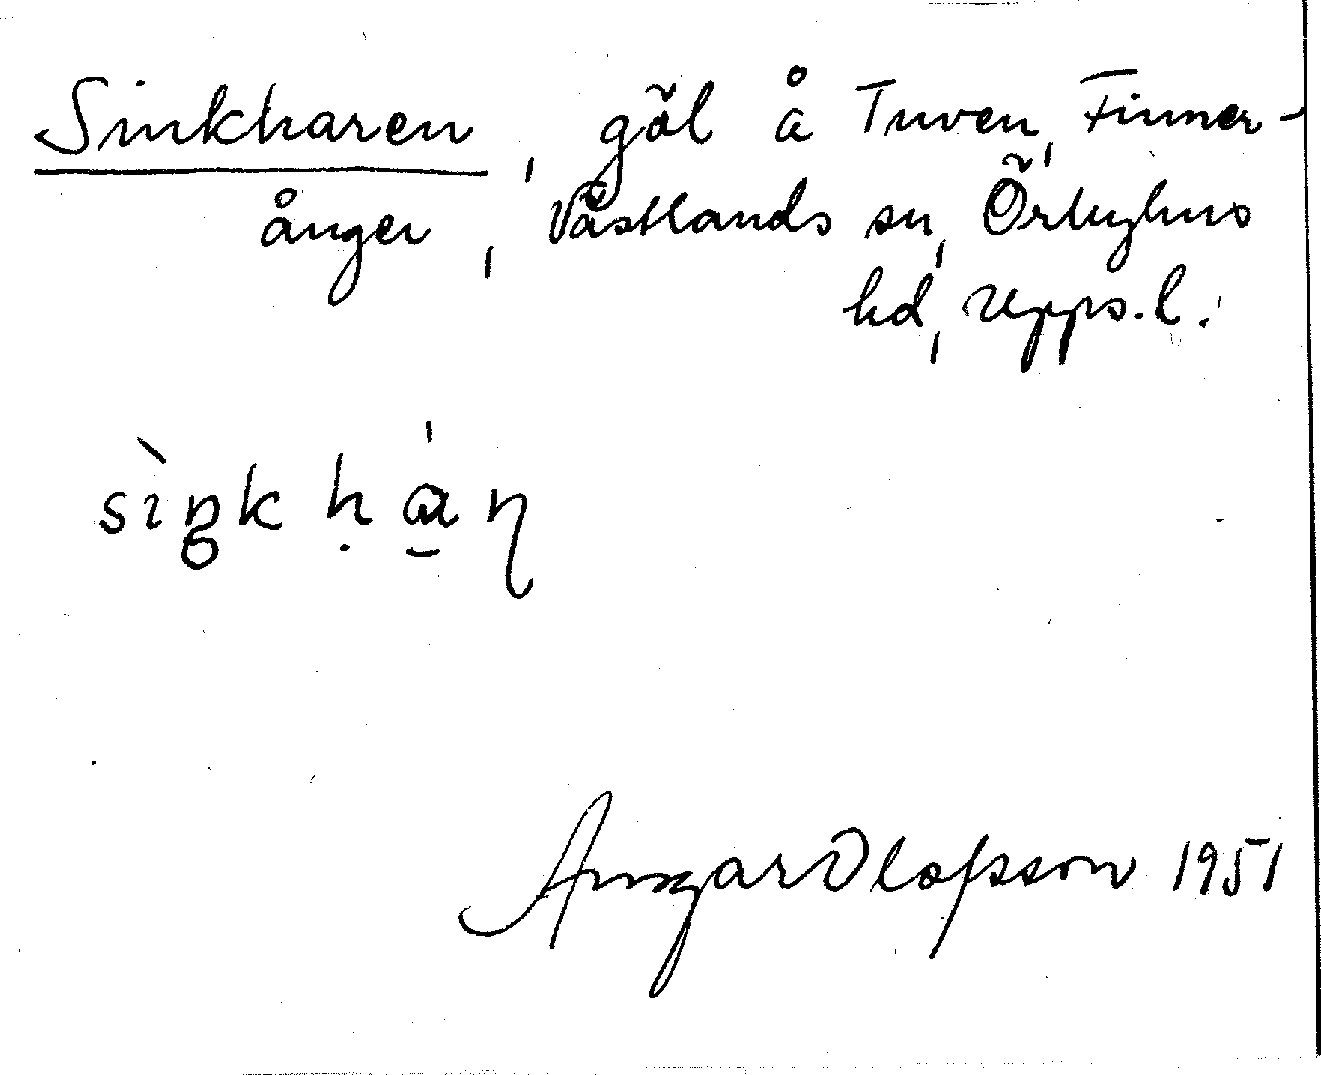 Sinkharen, göl å Tuven, Finner-
ånger, Västlands sn, Örbyhus
hd, Upps. l.
sìŋk ḥa̱n
Ansgar Olofsson 1951